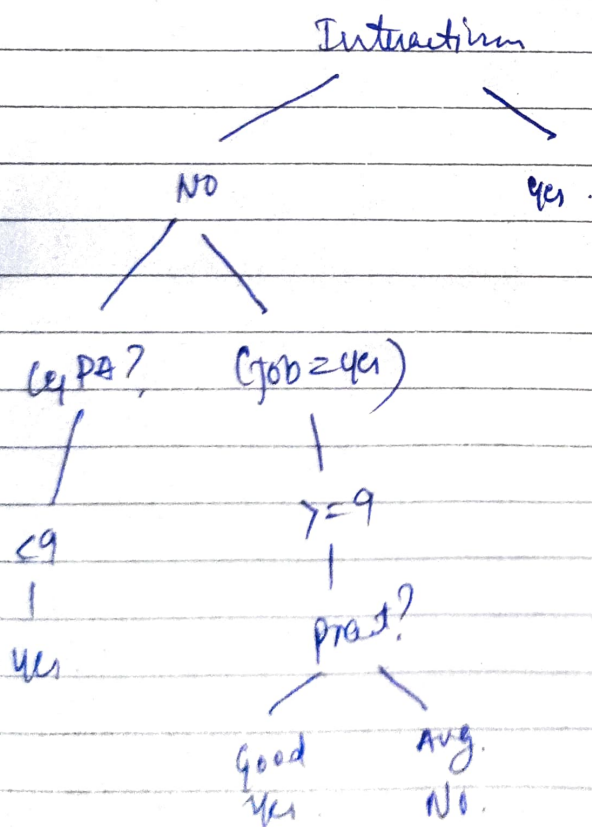 Interactivness
NO
Yes.
CGPA?
(Job=yes)
>=9
<9
pract?
yes
Good
Avg.
Yes
No.